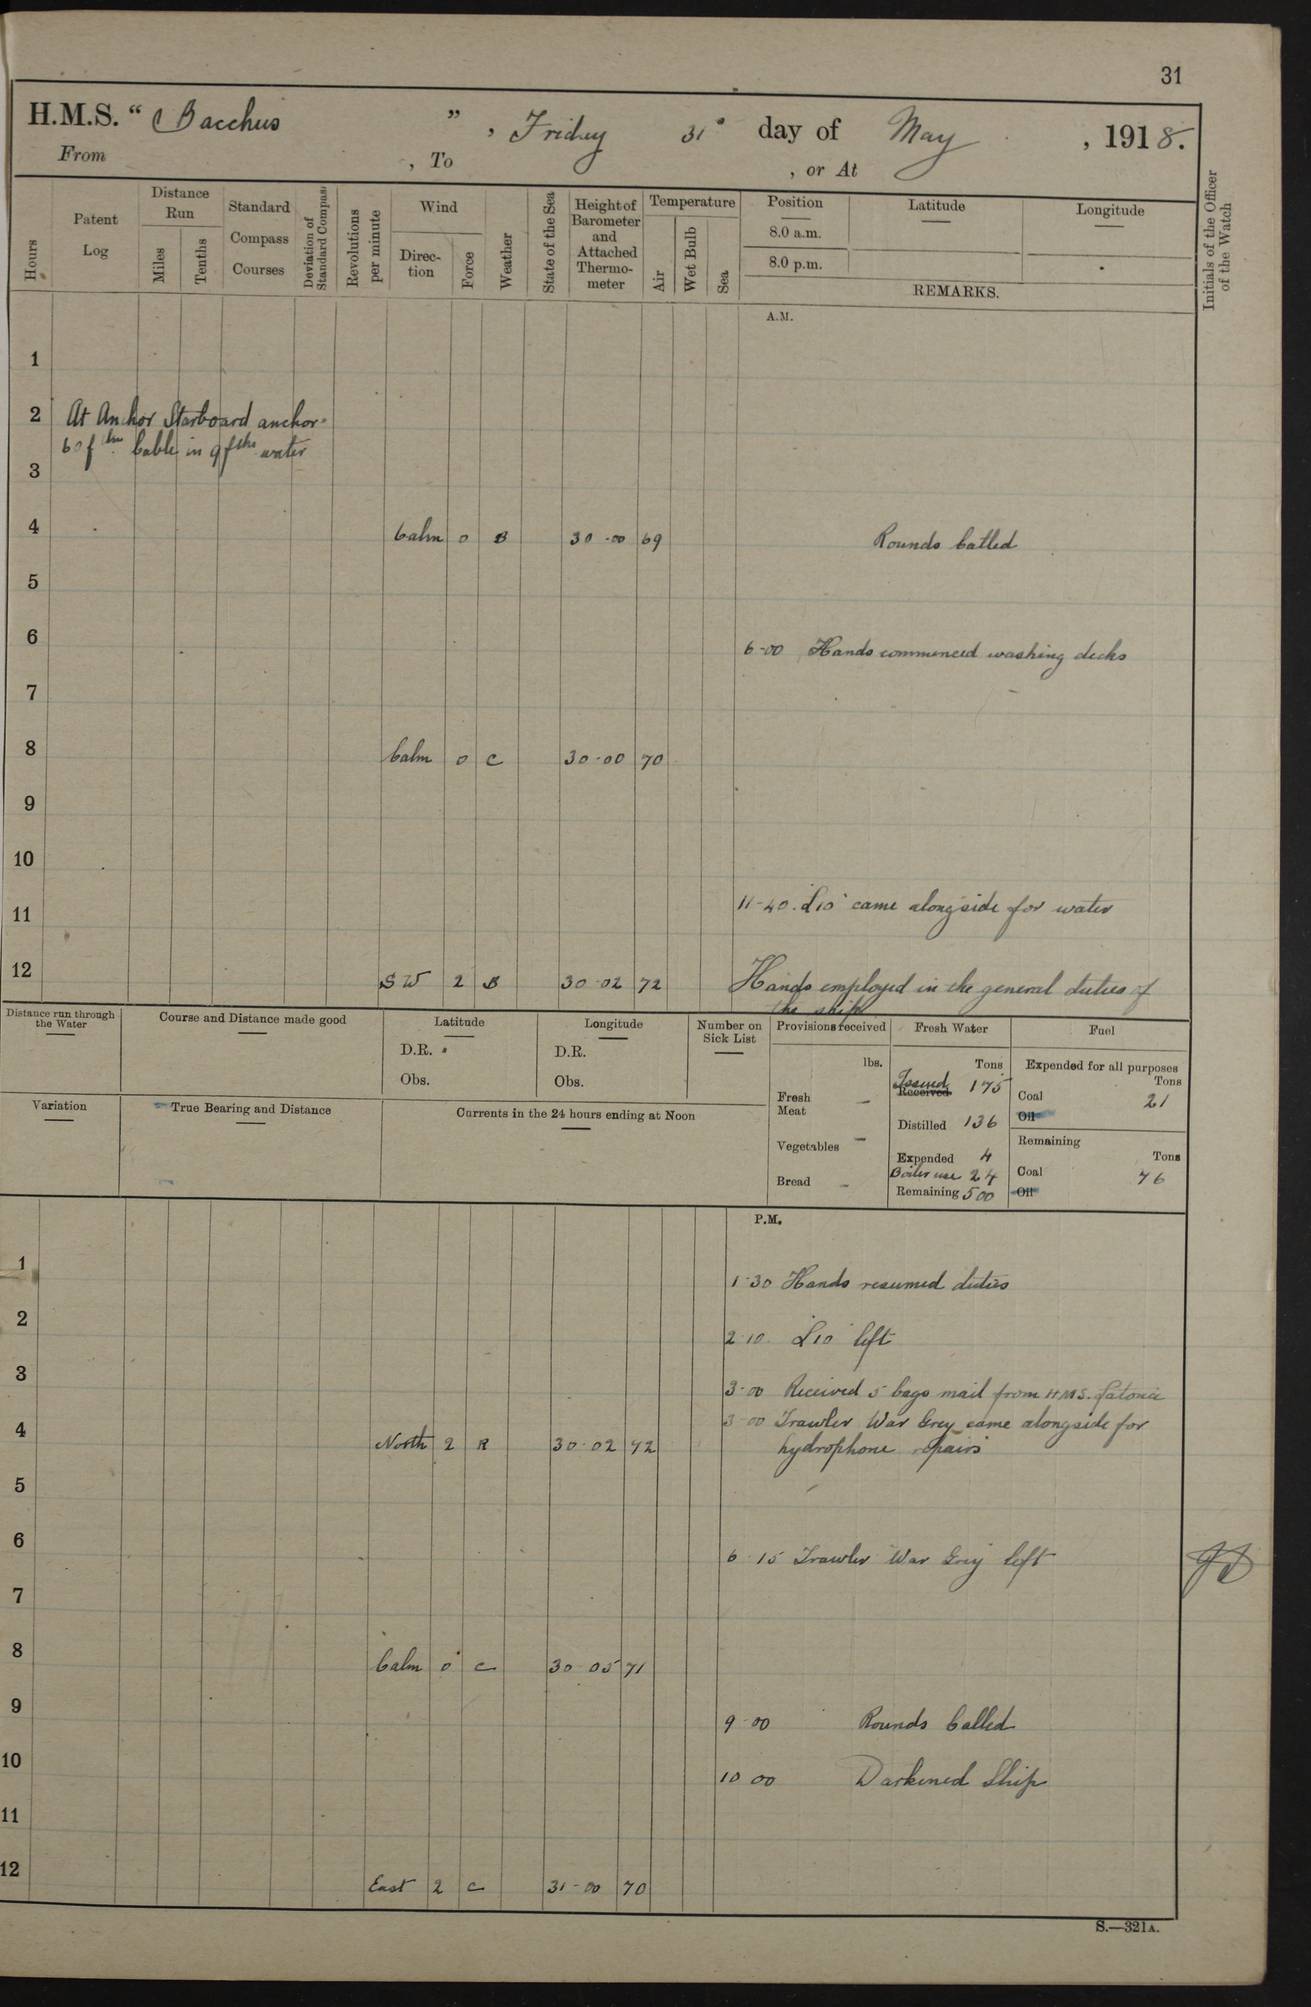 31
H.M.S. “ Bacchus ” , Friday 31st day of May , 1918.
From , To , or At
Hours
Patent Log
Distance Run
Miles
Tenths
Standard Compass Courses
Deviation of Standard Compass
Revolutions per minute
Wind
Direc-tion
Force
Weather
State of the Sea
Height of Barometer and Attached Thermo-meter
Temperature
Air
Wet Bulb
Sea
Position
8.0 a.m.
8.0 p.m.
Latitude
Longitude
REMARKS.
Initials of the Officer of the Watch
A.M.
1
2 At Anchor Starboard anchor
60 fthm Cable in 9 fthms water
3
4 Calm 0 B 30-00 69 Rounds Called
5
6 6-00 Hands commenced washing decks
7
8 Calm 0 C 30-00 70
9
10
11 11-40. "L10" came alongside for water
12 SW 2 B 30-02 72 Hands employed in the general duties of
the ship
Distance run through the Water
Course and Distance made good
Latitude
D.R.
Obs.
Longitude
D.R.
Obs.
Number on Sick List
Provisions received
lbs.
Fresh Meat –
Vegetables –
Bread –
Fresh Water
Tons
Issued 175
Received
Distilled 136
Expended 4
Boiler use 24
Remaining 500
Fuel
Expended for all purposes
Tons
Coal 21
Oil
Remaining
Tons
Coal 76
Oil
Variation
True Bearing and Distance
Currents in the 24 hours ending at Noon
P.M.
1 1-30 Hands resumed duties
2 2-10. "L10" left
3 3-00 Received 5 bags mail from H.M.S.
3-00 Trawler War Grey came alongside for
4 North 2 R 30-02 72 hydrophone repairs
5
6 6-15 Trawler "War Grey" left
7
8 Calm 0 C 30-05 71
9 9-00 Rounds Called
10 10-00 Darkened Ship
11
12 East 2 C 31-00 70
S.—321A.